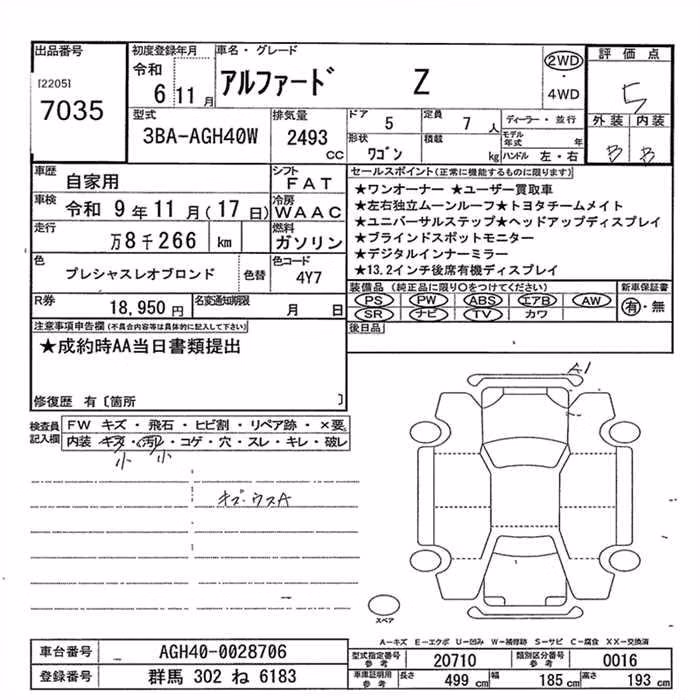 出品番号
[2205]
7035
初度登録年月
令和
6 11月
車名・グレード
アルファード Z
2WD
・
4WD
評価点
5
外装 内装
B B
型式
3BA-AGH40W
排気量
2493
cc
ドア
5
定員
7 人
形状
ワゴン
積載
kg
ディーラー・並行
モデル年式 年
ハンドル 左・右
車歴
自家用
シフト
FAT
車検
令和 9年11月(17日)
冷房
WAAC
走行
万8千266 km
燃料
ガソリン
色
プレシャスレオブロンド
色替
色コード
4Y7
R券
18,950円
名変通知期限
月 日
セールスポイント(正常に機能するものに限ります)
★ワンオーナー ★ユーザー買取車
★左右独立ムーンルーフ★トヨタチームメイト
★ユニバーサルステップ★ヘッドアップディスプレイ
★ブラインドスポットモニター
★デジタルインナーミラー
★13.2インチ後席有機ディスプレイ
装備品(純正品に限り○をつけてください)
PS PW ABS エアB AW
SR ナビ TV カワ
新車保証書
有・無
後日品
注意事項申告欄(不具合内容等は具体的に記入して下さい)
★成約時AA当日書類提出
修復歴 有〔箇所 〕
検査員記入欄
FW キズ・飛石・ヒビ割・リペア跡・×要
内装 キズ・汚れ・コゲ・穴・スレ・キレ・破レ
小 小
キズ・ウスA
A1
スペア
A-キズ E-エクボ U-凹み W-補修跡 S-サビ C-腐食 XX-交換済
車台番号
AGH40-0028706
登録番号
群馬 302 ね 6183
型式指定番号
参考
20710
類別区分番号
参考
0016
車庫証明用
参考
長さ 499 cm
幅 185 cm
高さ 193 cm